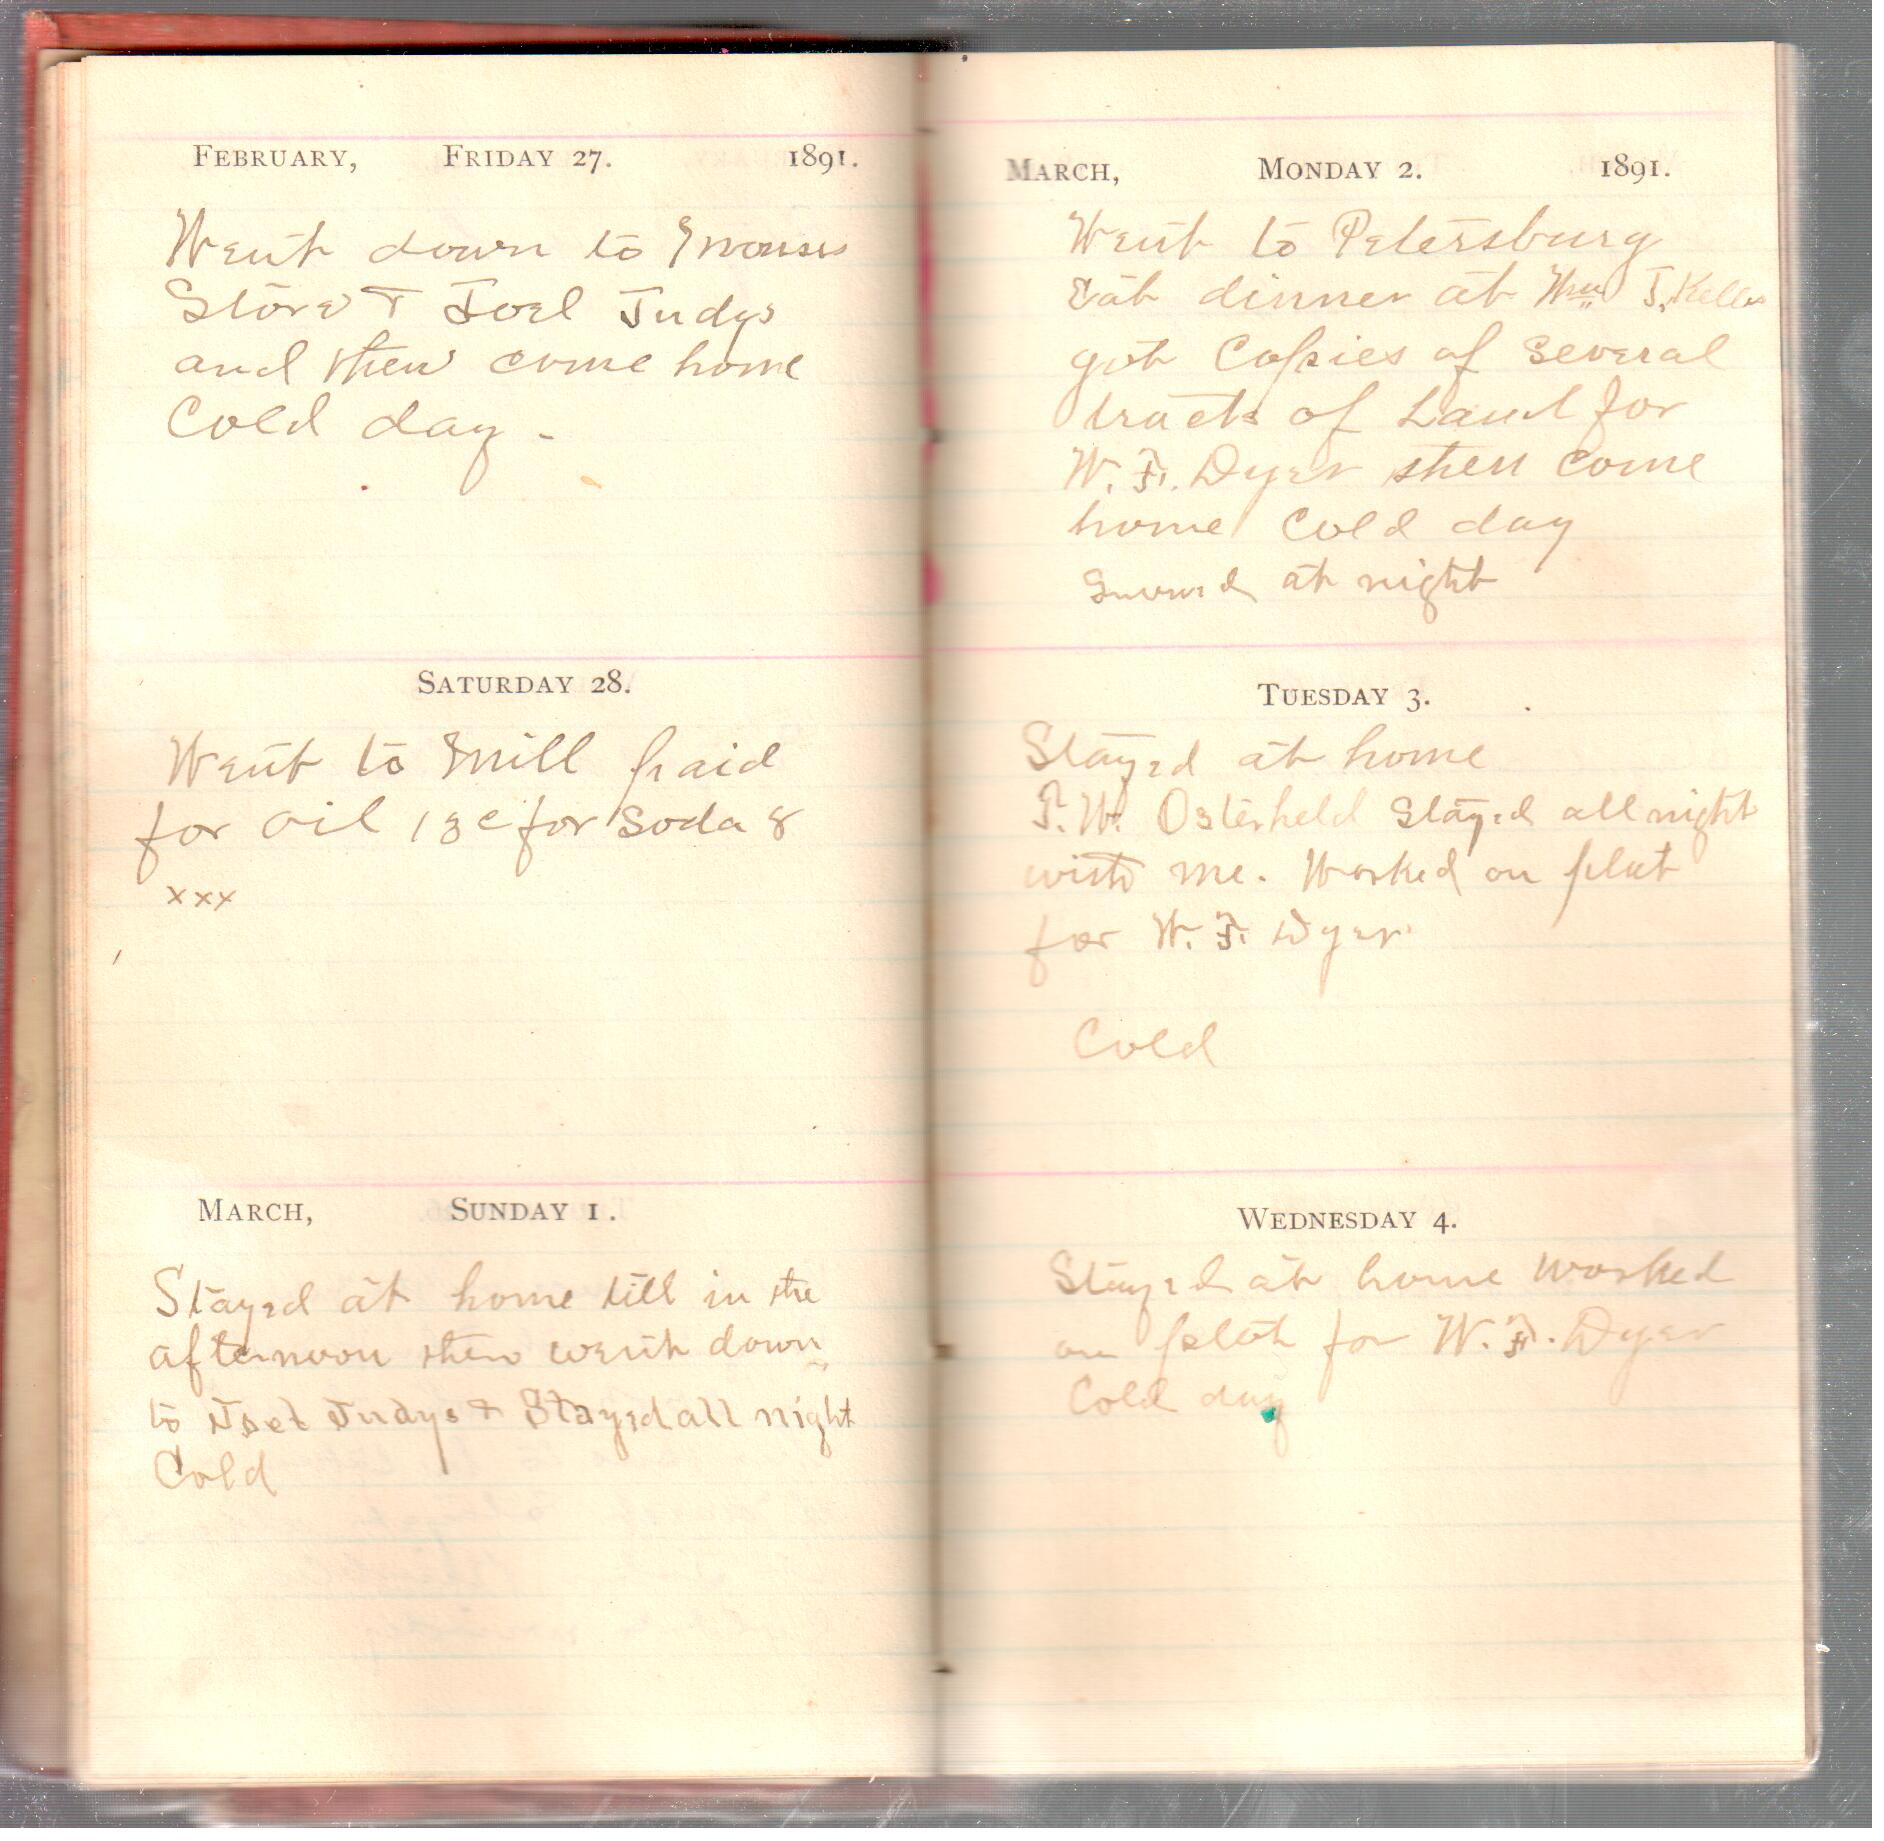 FEBRUARY, FRIDAY 27. 1891.
Went down to Mouses
Store & Joel Judys
and then come home
Cold day -
SATURDAY 28.
Went to Mill paid
for oil 18c for Soda 8
xxx
MARCH, SUNDAY 1.
Stayed at home till in the
afternoon then went down
to Joel Judys & Stayed all night
Cold
MARCH, MONDAY 2. 1891.
Went to Petersburg
Eat dinner at Wm J.
got Copies of Several
tracts of Land for
W. F. Dyer then come
home Cold day
Snowed at night
TUESDAY 3.
Stayed at home
W. Osterheld Stayed all night
with me. Worked on plat
for W. F. Dyer
Cold
WEDNESDAY 4.
Stayed at home worked
on plat for W. F. Dyer
Cold day